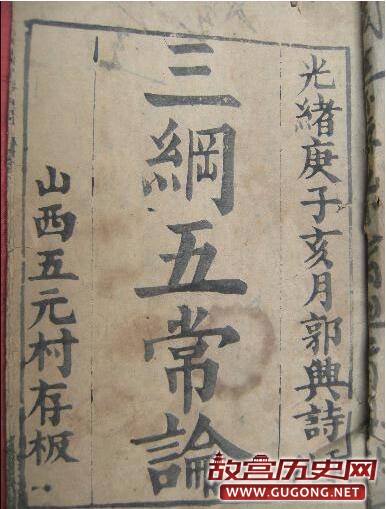 光緒庚子亥月郭典詩
三綱五常論
山西五元村存板
故宫历史网
WWW.GUGONG.NET